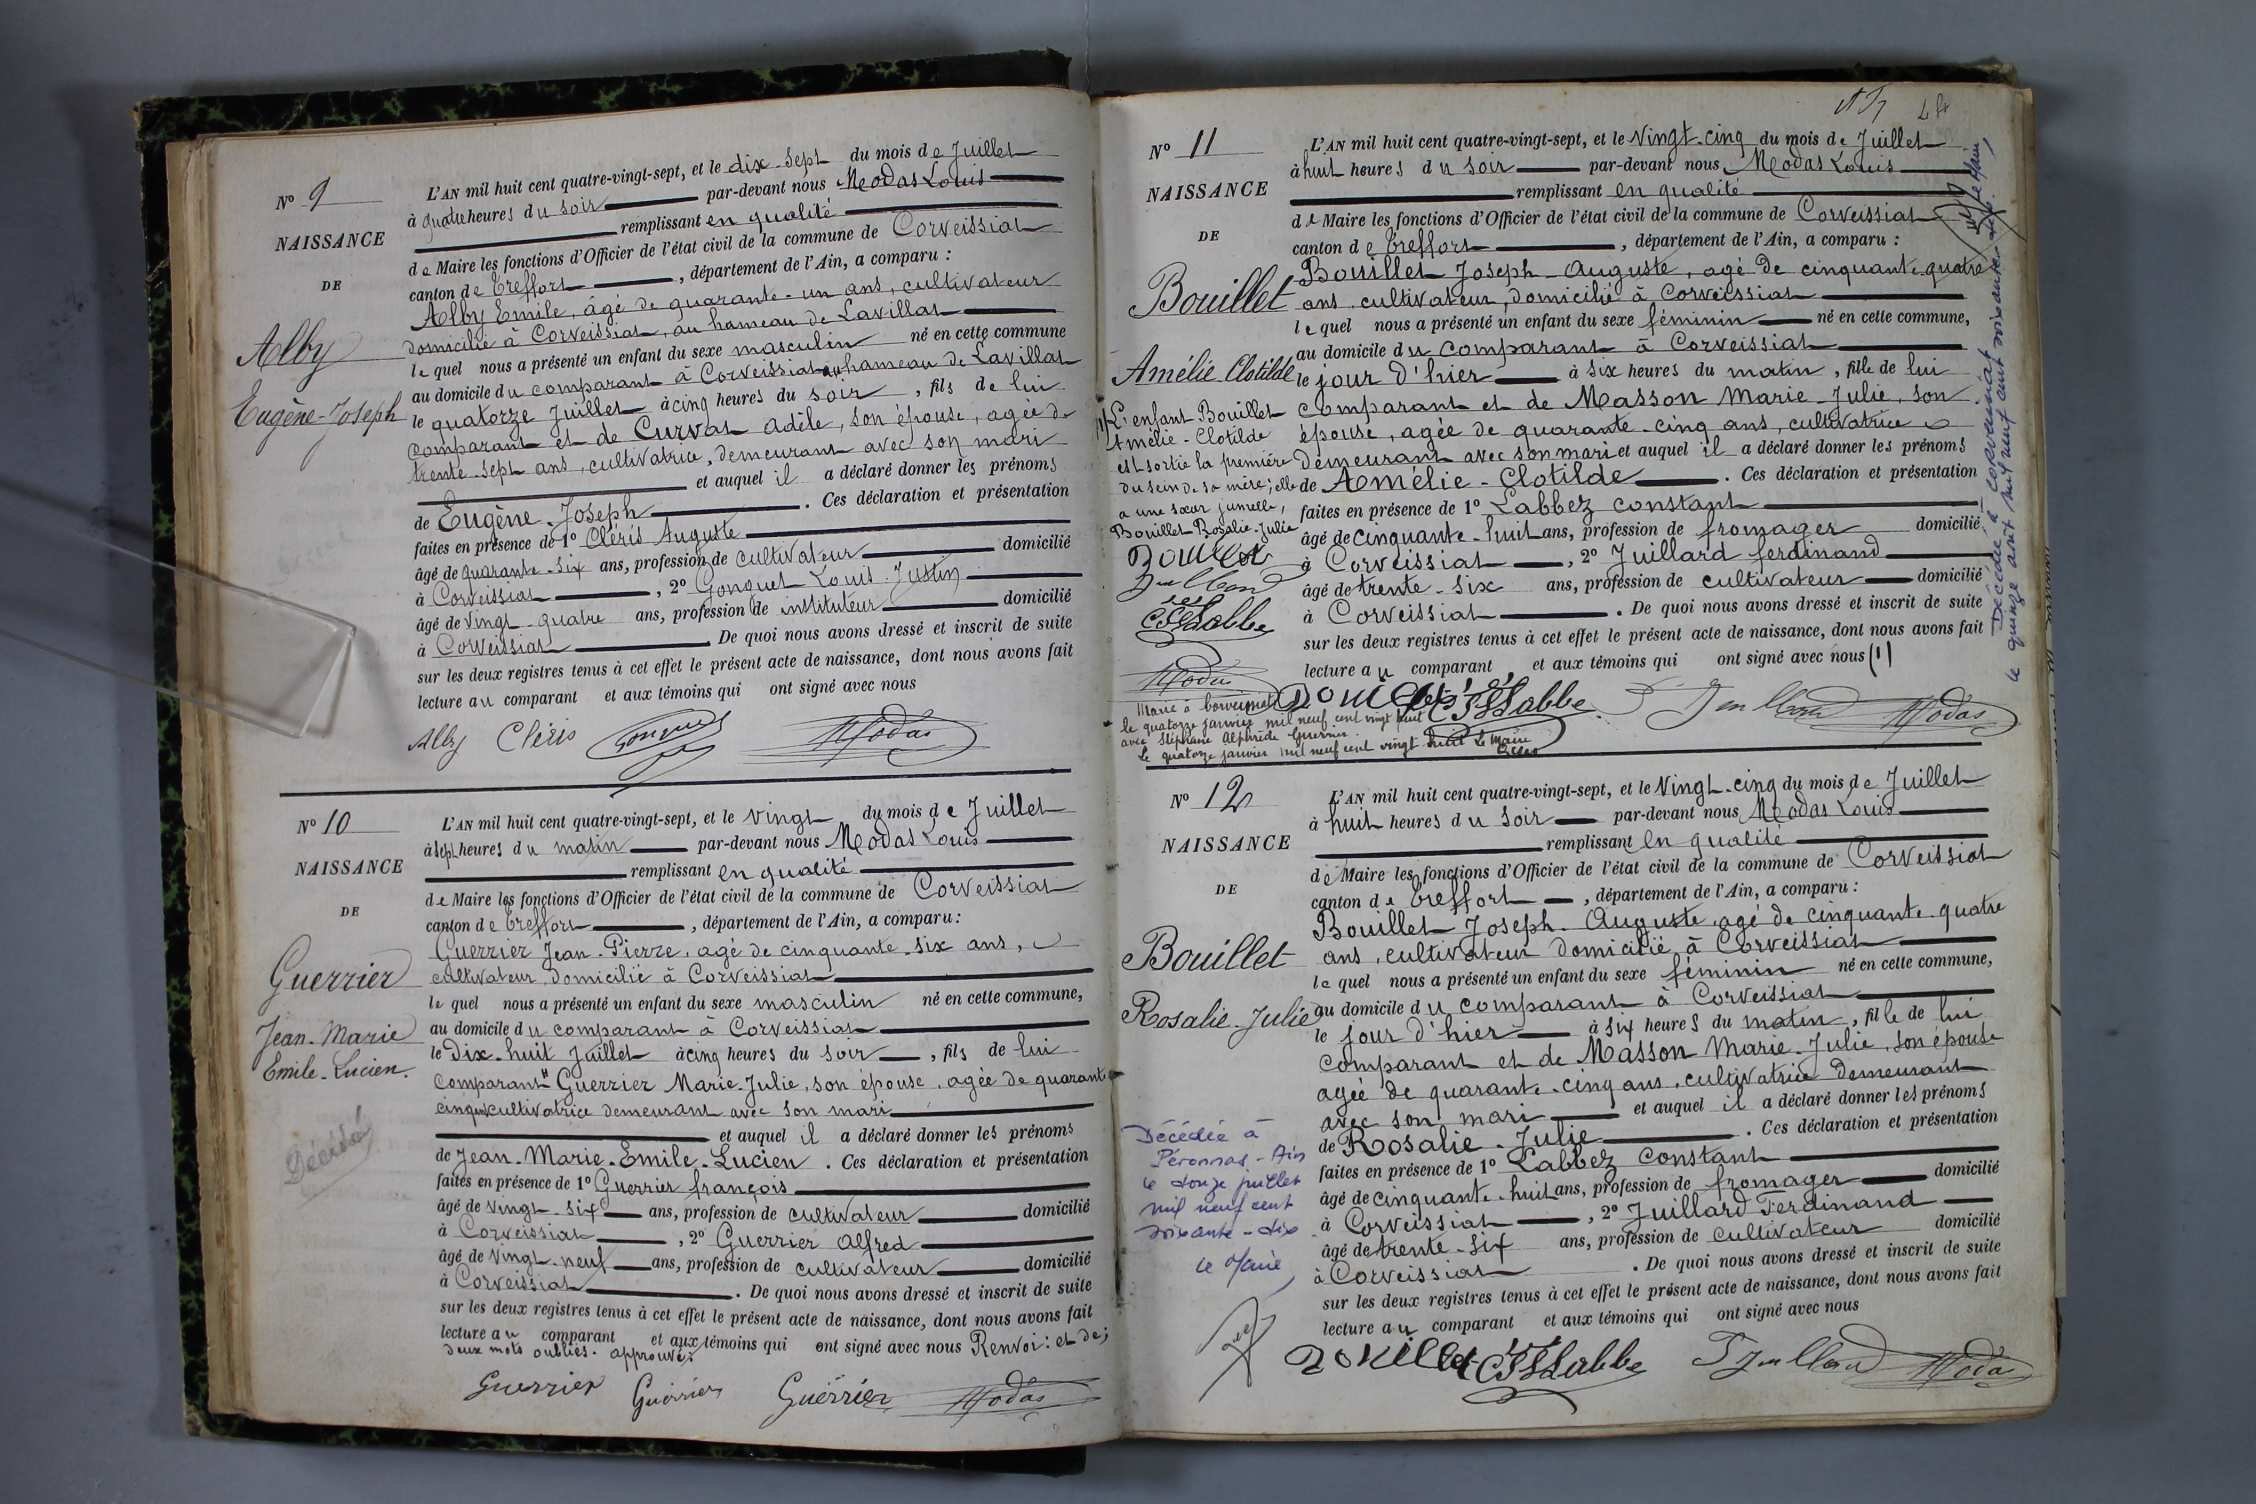 Nº 9
NAISSANCE
DE
Alby
Eugène-Joseph
L'AN mil huit cent quatre-vingt-sept, et le dix-sept du mois de Juillet
à quatre heures du soir par-devant nous Modas Louis
remplissant en qualité
de Maire les fonctions d'Officier de l'état civil de la commune de Corveissiat
canton de Treffort, département de l'Ain, a comparu :
Alby Emile, âgé de quarante-un ans, cultivateur
domicilié à Corveissiat, au hameau de Lavillat
lequel nous a présenté un enfant du sexe masculin né en cette commune
au domicile du comparant à Corveissiat au hameau de Lavillat
le quatorze Juillet à cinq heures du soir, fils de lui
comparant et de Curvat Adèle, son épouse, agée de
trente-sept ans, cultivatrice, demeurant avec son mari
et auquel il a déclaré donner les prénoms
de Eugène-Joseph. Ces déclaration et présentation
faites en présence de 1º Cléris Auguste
âgé de quarante-six ans, profession de cultivateur domicilié
à Corveissiat, 2º Gonguet Louis-Justin
âgé de vingt-quatre ans, profession de instituteur domicilié
à Corveissiat. De quoi nous avons dressé et inscrit de suite
sur les deux registres tenus à cet effet le présent acte de naissance, dont nous avons fait
lecture au comparant et aux témoins qui ont signé avec nous
Alby Cléris Gonguet Modas
Nº 10
NAISSANCE
DE
Guerrier
Jean-Marie
Emile-Lucien.
Décédé
L'AN mil huit cent quatre-vingt-sept, et le vingt du mois de Juillet
à sept heures du matin par-devant nous Modas Louis
remplissant en qualité
de Maire les fonctions d'Officier de l'état civil de la commune de Corveissiat
canton de Treffort, département de l'Ain, a comparu :
Guerrier Jean-Pierre, agé de cinquante-six ans,
cultivateur domicilié à Corveissiat
lequel nous a présenté un enfant du sexe masculin né en cette commune,
au domicile du comparant à Corveissiat
le Dix-huit Juillet à cinq heures du soir, fils de lui
comparant " Guerrier Marie-Julie, son épouse, agée de quarante
cinq ans cultivatrice demeurant avec son mari
et auquel il a déclaré donner les prénoms
de Jean-Marie-Emile-Lucien. Ces déclaration et présentation
faites en présence de 1º Guerrier françois
âgé de vingt-six ans, profession de cultivateur domicilié
à Corveissiat, 2º Guerrier Alfred
âgé de vingt-neuf ans, profession de cultivateur domicilié
à Corveissiat. De quoi nous avons dressé et inscrit de suite
sur les deux registres tenus à cet effet le présent acte de naissance, dont nous avons fait
lecture au comparant et aux témoins qui ont signé avec nous Renvoi : et de ;
deux mots oubliés. approuvés
Guerrier Guerrier Guerrier Modas
Nº 11
NAISSANCE
DE
Bouillet
Amélie-Clotilde
(1) L'enfant Bouillet
Amélie-Clotilde
est sortie la première
du sein de sa mère; elle
a une sœur jumelle,
Bouillet Rosalie-Julie
Bouillet
Juillard
Labbez
Modas
L'AN mil huit cent quatre-vingt-sept, et le Vingt-cinq du mois de Juillet
à huit heures du soir par-devant nous Modas Louis
remplissant en qualité
de Maire les fonctions d'Officier de l'état civil de la commune de Corveissiat
canton de Treffort, département de l'Ain, a comparu :
Bouillet Joseph-Auguste, agé de cinquante-quatre
ans, cultivateur, domicilié à Corveissiat
lequel nous a présenté un enfant du sexe féminin né en cette commune,
au domicile du comparant à Corveissiat
le jour d'hier à six heures du matin, fille de lui
comparant et de Masson Marie-Julie, son
épouse, agée de quarante-cinq ans, cultivatrice
demeurant avec son mari et auquel il a déclaré donner les prénoms
de Amélie-Clotilde. Ces déclaration et présentation
faites en présence de 1º Labbez constant
âgé de cinquante-huit ans, profession de fromager domicilié
à Corveissiat, 2º Juillard ferdinand
âgé de trente-six ans, profession de cultivateur domicilié
à Corveissiat. De quoi nous avons dressé et inscrit de suite
sur les deux registres tenus à cet effet le présent acte de naissance, dont nous avons fait
lecture au comparant et aux témoins qui ont signé avec nous (1)
Bouillet Labbez Juillard Modas
Marié à Corveissiat
le quatorze janvier mil neuf cent vingt huit
avec Stéphane Alphrède Guerrier
Le quatorze janvier mil neuf cent vingt huit Le Maire
Décédée à Corveissiat
le quinze avril mil neuf cent soixante
le Maire,
Nº 12
NAISSANCE
DE
Bouillet
Rosalie-Julie
L'AN mil huit cent quatre-vingt-sept, et le Vingt-cinq du mois de Juillet
à huit heures du soir par-devant nous Modas Louis
remplissant en qualité
de Maire les fonctions d'Officier de l'état civil de la commune de Corveissiat
canton de Treffort, département de l'Ain, a comparu :
Bouillet Joseph-Auguste agé de cinquante-quatre
ans, cultivateur domicilié à Corveissiat
lequel nous a présenté un enfant du sexe féminin né en cette commune,
au domicile du comparant à Corveissiat
le jour d'hier à six heures du matin, fille de lui
comparant et de Masson Marie-Julie, son épouse
agée de quarante-cinq ans, cultivatrice demeurant
avec son mari et auquel il a déclaré donner les prénoms
de Rosalie-Julie. Ces déclaration et présentation
faites en présence de 1º Labbez constant
âgé de cinquante-huit ans, profession de fromager domicilié
à Corveissiat, 2º Juillard Ferdinand
âgé de trente-six ans, profession de cultivateur domicilié
à Corveissiat. De quoi nous avons dressé et inscrit de suite
sur les deux registres tenus à cet effet le présent acte de naissance, dont nous avons fait
lecture au comparant et aux témoins qui ont signé avec nous
Bouillet Labbez Juillard Modas
Décédée à
Péronnas-Ain
le douze juillet
mil neuf cent
soixante-dix
le Maire,